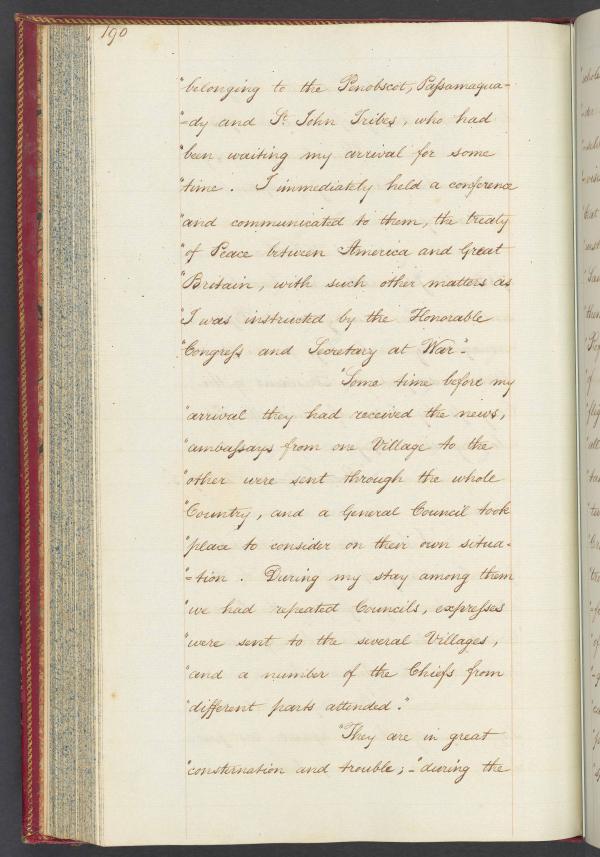 190
"belonging to the Penobscot, Paſsamaqua-
"-dy and St John Tribes, who had
"been waiting my arrival for some
"time. I immediately held a conference
"and communicated to them, the treaty
"of Peace between America and Great
"Britain, with such other matters as
"I was instructed by the Honorable
"Congreſs and Secretary at War".
"Some time before my
"arrival they had received the news,
"ambaſsays from one Village to the
"other were sent through the whole
"Country, and a General Council took
"place to consider on their own situa-
"-tion. During my stay among them
"we had repeated Councils, expreſses
"were sent to the several Villages,
"and a number of the Chiefs from
"different parts attended."
"They are in great
"consternation and trouble;-"during the